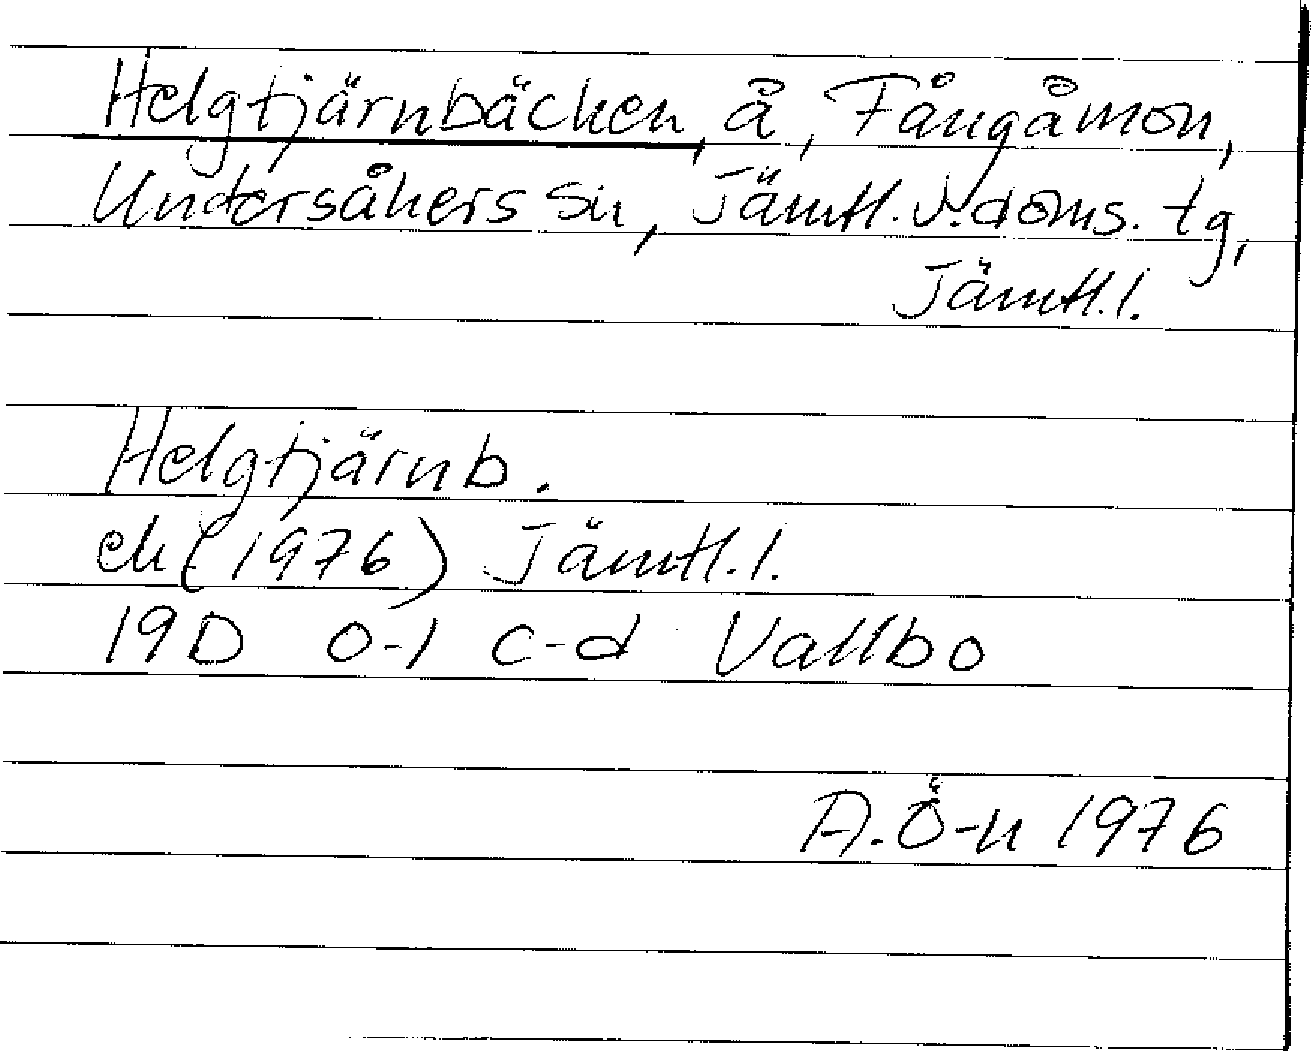 Helgtjärnbäcken, å, Fångåmon,
Undersåkers sn, Jämtl. v. doms. tg,
Jämtl.l.
Helgtjärnb.
ek (1976) Jämtl.l.
19D 0-1 c-d Vallbo
A. Ö-n 1976